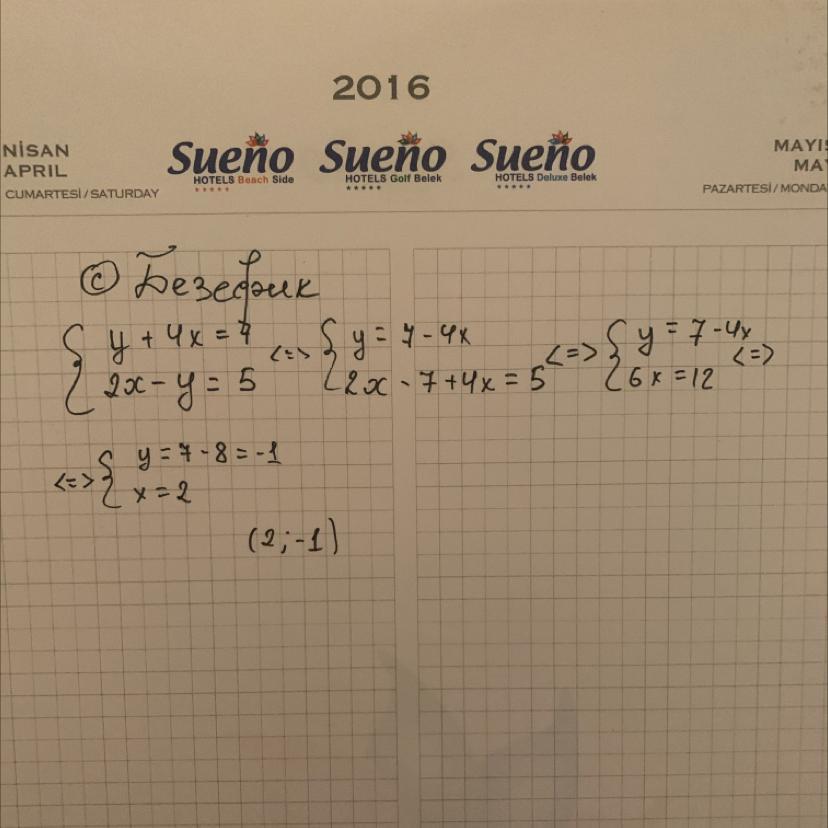 2016
NİSAN
APRIL
CUMARTESİ / SATURDAY
Sueno
HOTELS Beach Side
Sueno
HOTELS Golf Belek
Sueno
HOTELS Deluxe Belek
MAYIS
MA
PAZARTESİ / MONDA
© Безефрик
{ y + 4x = 7 <=> { y = 7 - 4x <=> { y = 7 - 4x <=>
2x - y = 5 2x - 7 + 4x = 5 6x = 12
<=> { y = 7 - 8 = -1
x = 2
(2; -1)